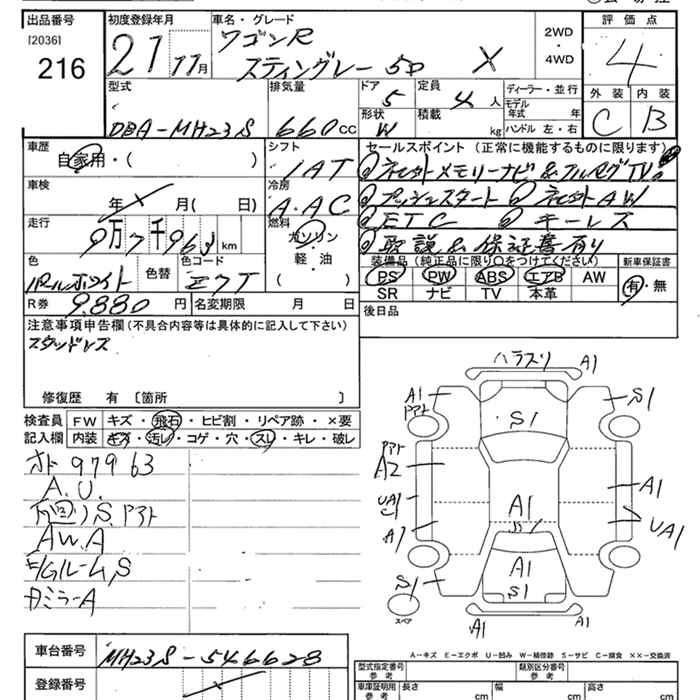 出品番号
[2036]
216
初度登録年月
21 11月
車名・グレード
ワゴンR
スティングレー 5D X
2WD
・
4WD
評価点
4
外装 内装
C B
型式
DBA-MH23S
排気量
660cc
ドア
5
形状
W
定員
4人
積載
kg
ディーラー・並行
モデル年式 年
ハンドル 左・右
車歴
自家用・( )
シフト
IAT
車検
年 月( 日)
冷房
A.AC
走行
9万7千963km
燃料
ガソリン
軽・油
( )
色
パールホワイト
色替
色コード
ZVT
R券 9,880円
名変期限 月 日
セールスポイント(正常に機能するものに限ります)
社外メモリーナビ&フルセグTV
プッシュスタート 社外AW
ETC キーレス
取説&保証書有り
装備品(純正品に限り○をつけてください)
PS PW ABS エアB AW
SR ナビ TV 本革
新車保証書
有・無
後日品
注意事項申告欄(不具合内容等は具体的に記入して下さい)
スタッドレス
修復歴 有 〔箇所 〕
検査員
記入欄
FW キズ・飛石・ヒビ割・リペア跡・×要
内装 キズ・汚レ・コゲ・穴・スレ・キレ・破レ
オド 97963
A.U.
S.アト
AW.A
E/Gルーム,S
ミラーA
ハラスリ A1
A1 S1
S1
A2
A1 A1
UA1
A1
UA1
A1
S1 S1
スペア
A1 A1
A-キズ E-エクボ U-凹み W-補修跡 S-サビ C-腐食 XX-交換済
車台番号
MH23S-546628
登録番号
型式指定番号
参考
類別区分番号
参考
車庫証明用
参考
長さ cm
幅 cm
高さ cm